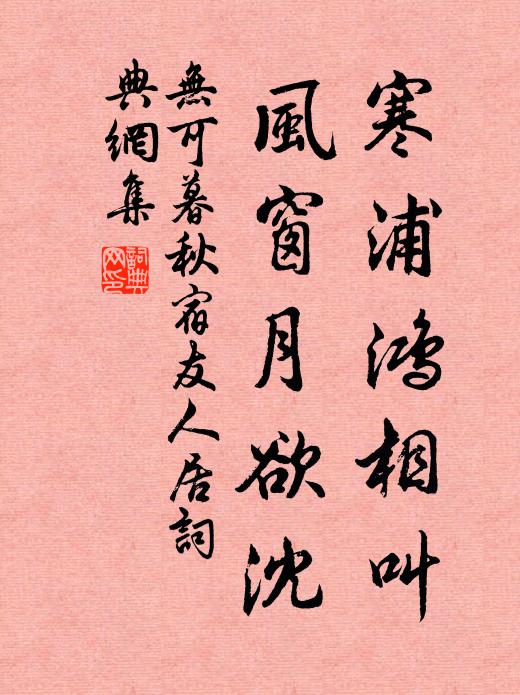 寒浦鴻相叫
風窗月欲沈
無可暮秋宿友人居詞
典網集
詞典
网印